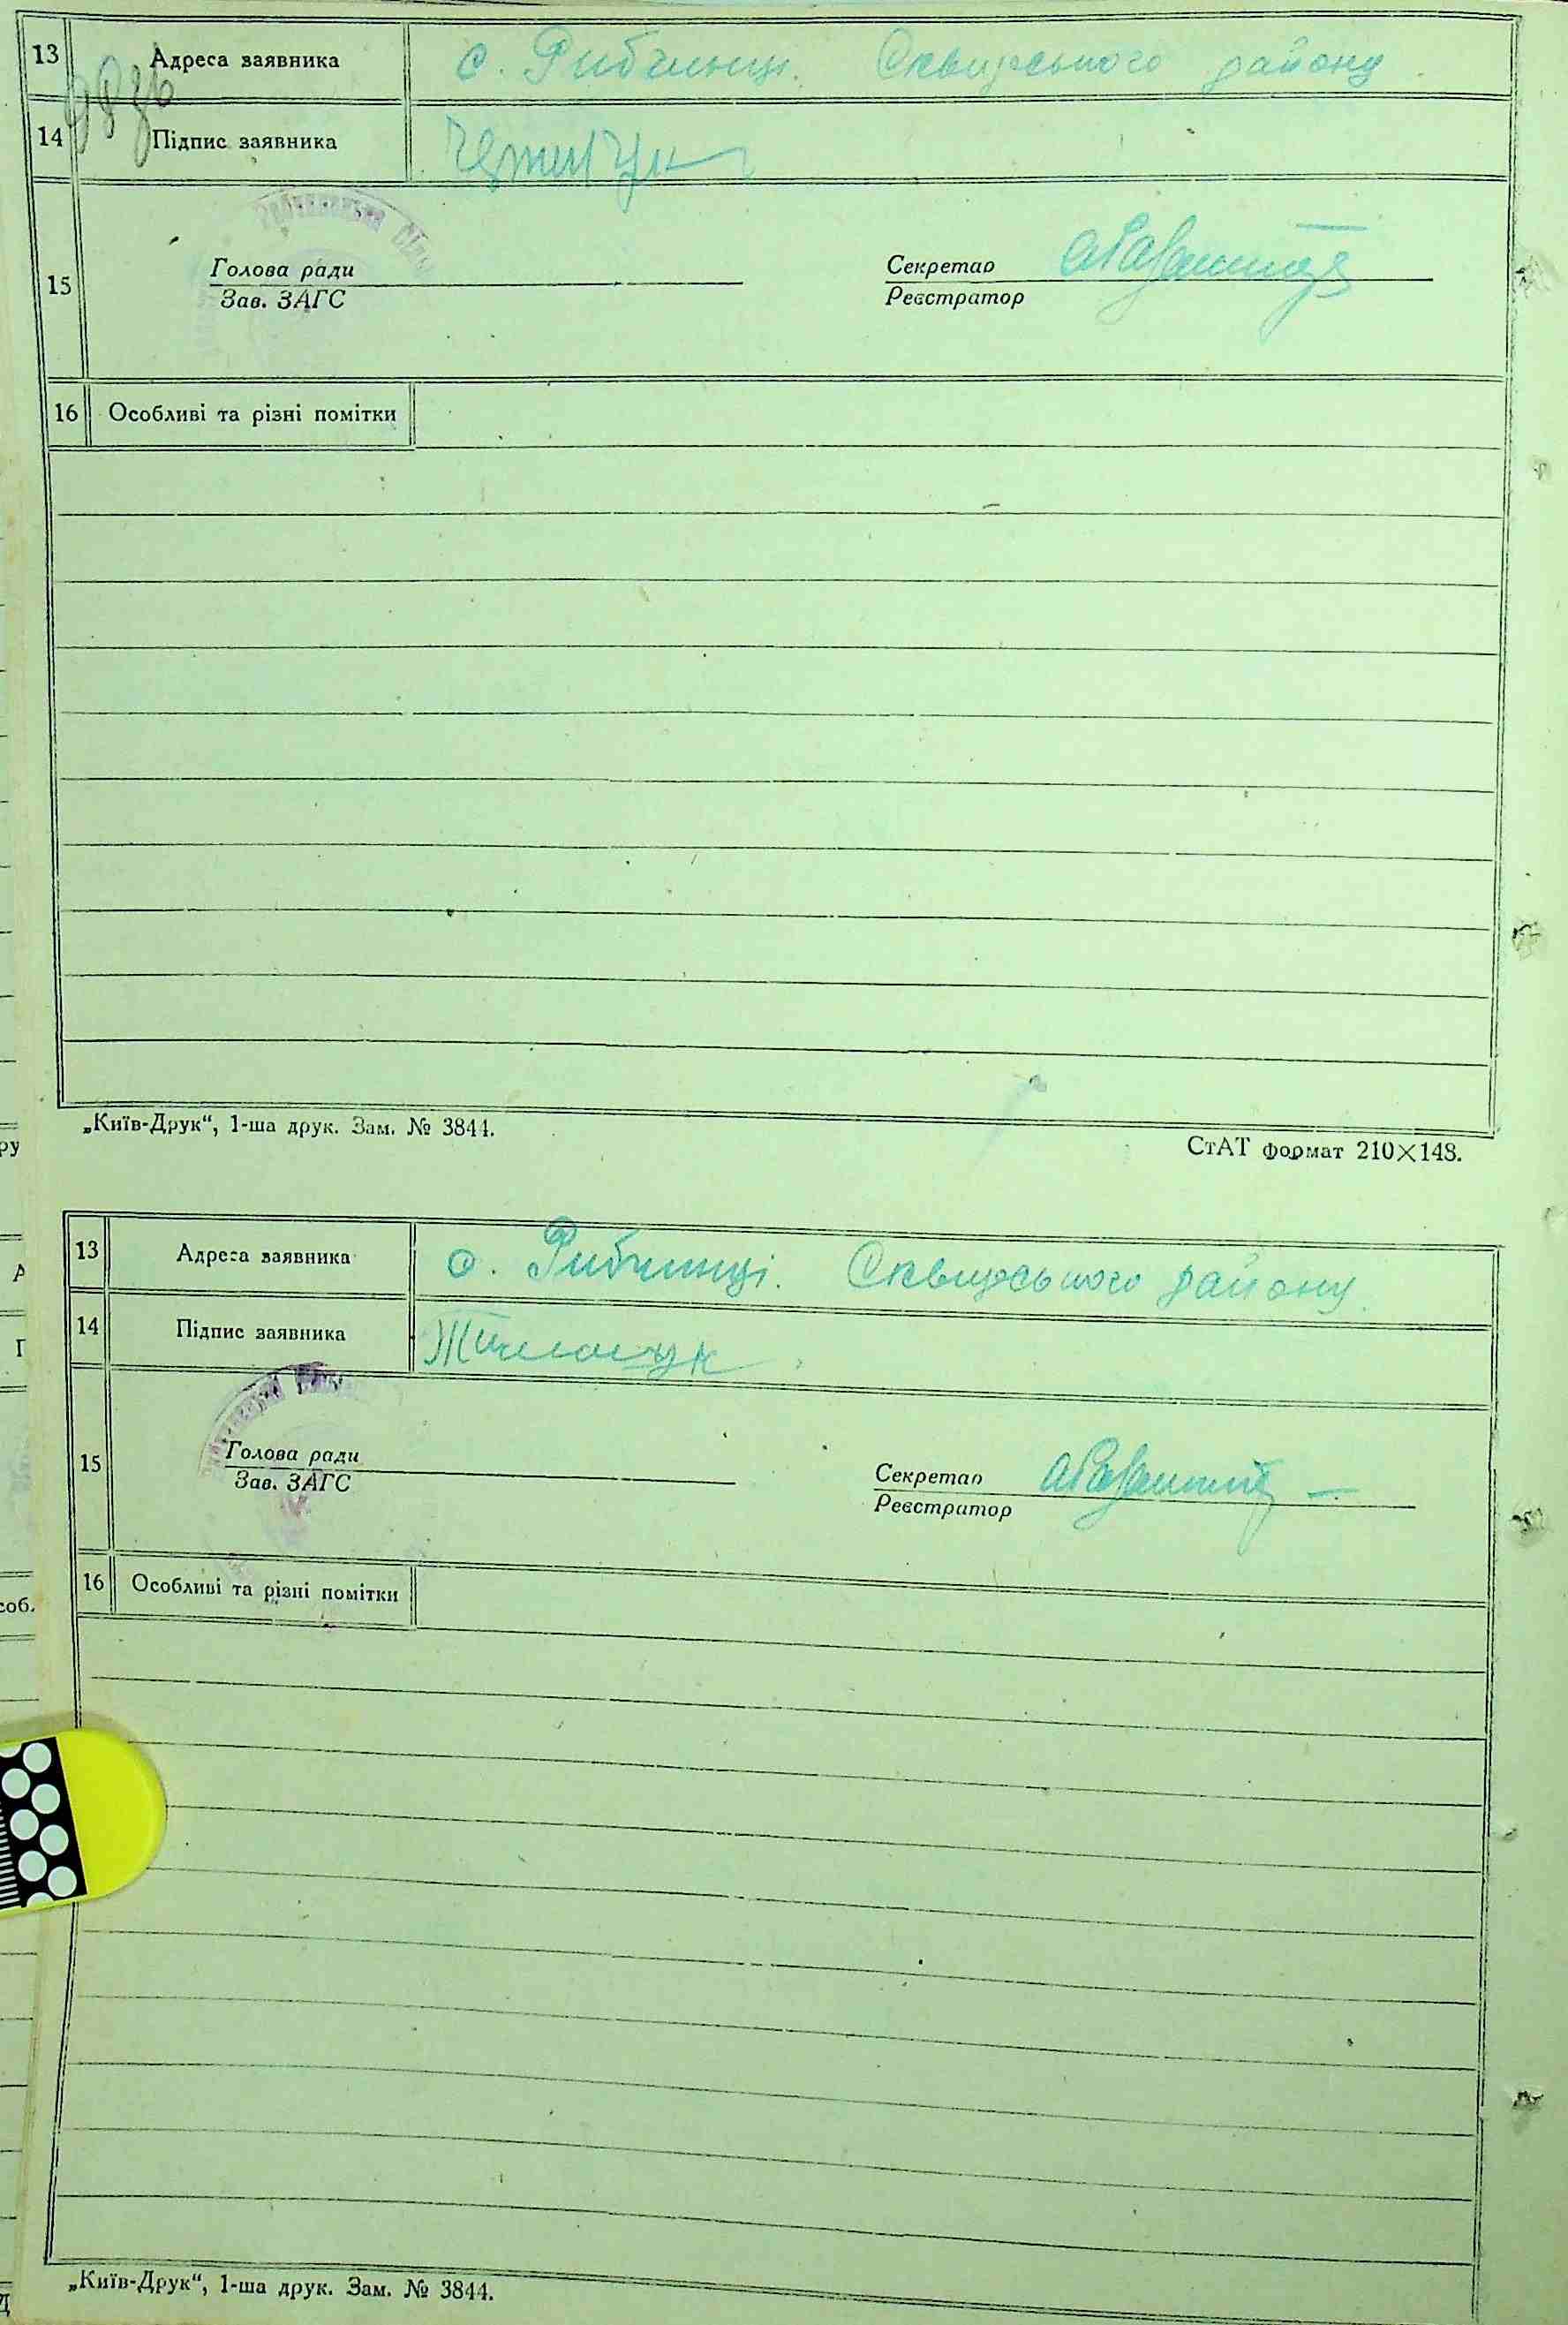 13 Адреса заявника с. Рибчинці. Сквирського району.
14 Підпис заявника
15
Голова ради Секретар
Зав. ЗАГС Реєстратор
16 Особливі та різні помітки
„Київ-Друк“, 1-ша друк. Зам. № 3844.
СтАТ формат 210×148.
13 Адреса заявника с. Рибчинці. Сквирського району.
14 Підпис заявника
15
Голова ради Секретар
Зав. ЗАГС Реєстратор
16 Особливі та різні помітки
„Київ-Друк“, 1-ша друк. Зам. № 3844.